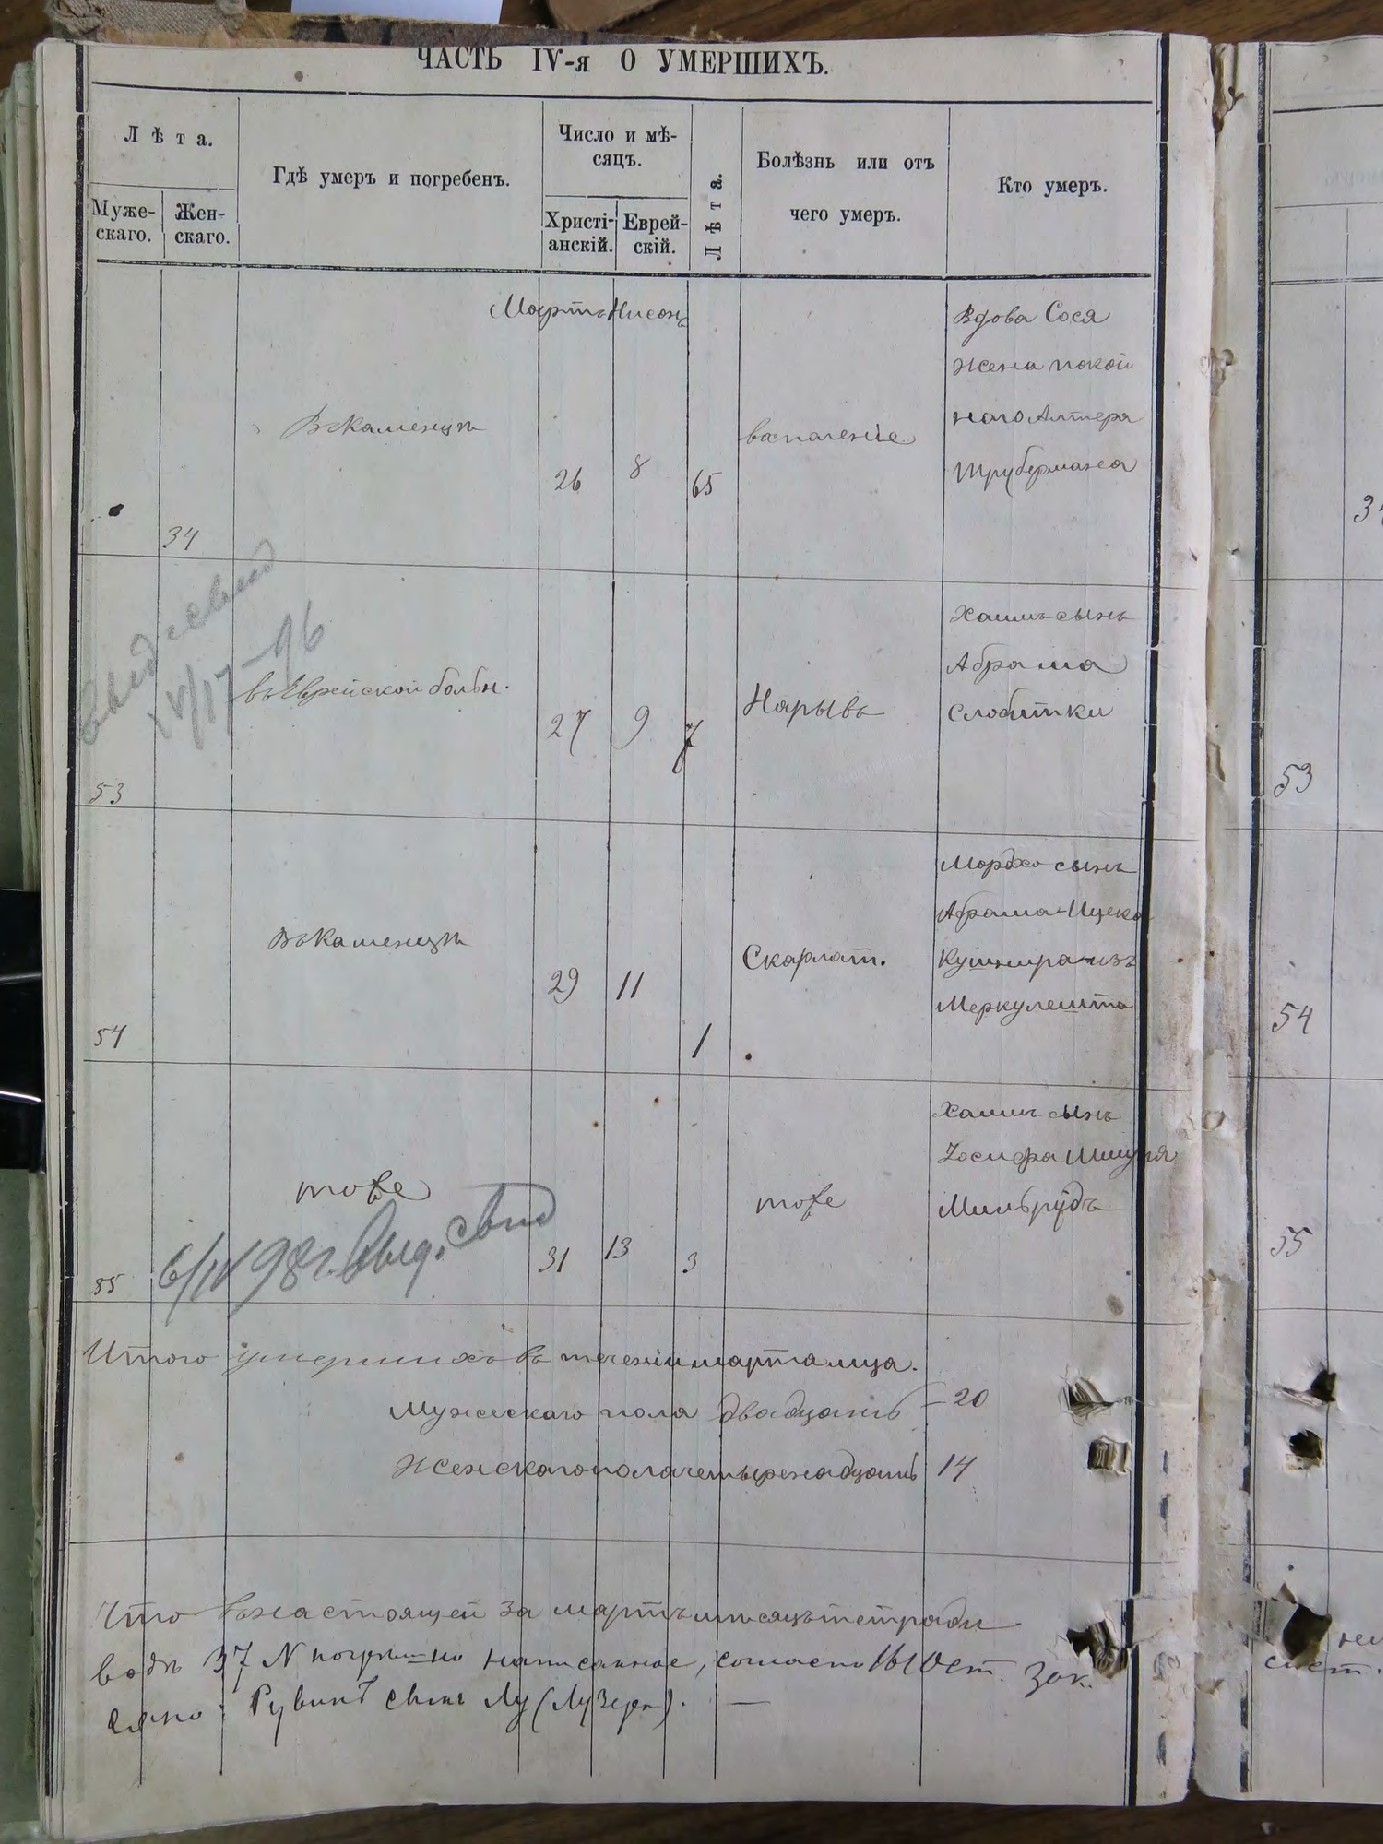 ЧАСТЬ IV-я О УМЕРШИХЪ.
Лѣта.
Муже-
скаго.
Жен-
скаго.
Гдѣ умеръ и погребенъ.
Число и мѣ-
сяцъ.
Христі-
анскій.
Еврей-
скій.
Лѣта.
Болѣзнь или отъ
чего умеръ.
Кто умеръ.
Мартъ Нисонъ
34
Въ Каменцѣ
26
8
65
воспаленіе
Вдова Сося
жена покой
наго Алтера
Трубермана
53
въ Еврейской больн.
27
9
7
Нарывъ
Хаимъ сынъ
Абрама
Слобитки
54
Въ Каменцѣ
29
11
1
Скарлат.
Мордко сынъ
Абрама-Ицека
Кушнира изъ
Меркулешта
55
тоже
31
13
3
тоже
Хаимъ сынъ
Іосифа Шмуля
Мильрудъ
6/IV 98 г. выд. свид
Итого умершихъ въ теченіи марта мца.
Мужескаго пола двадцать – 20
Женскаго пола четырнадцать 14
Что въ настоящей за мартъ мѣсяцъ тетради
подъ 37 N написанное, согласно 1610 ст. Зак.
Рувинъ сынъ
34
53
54
55